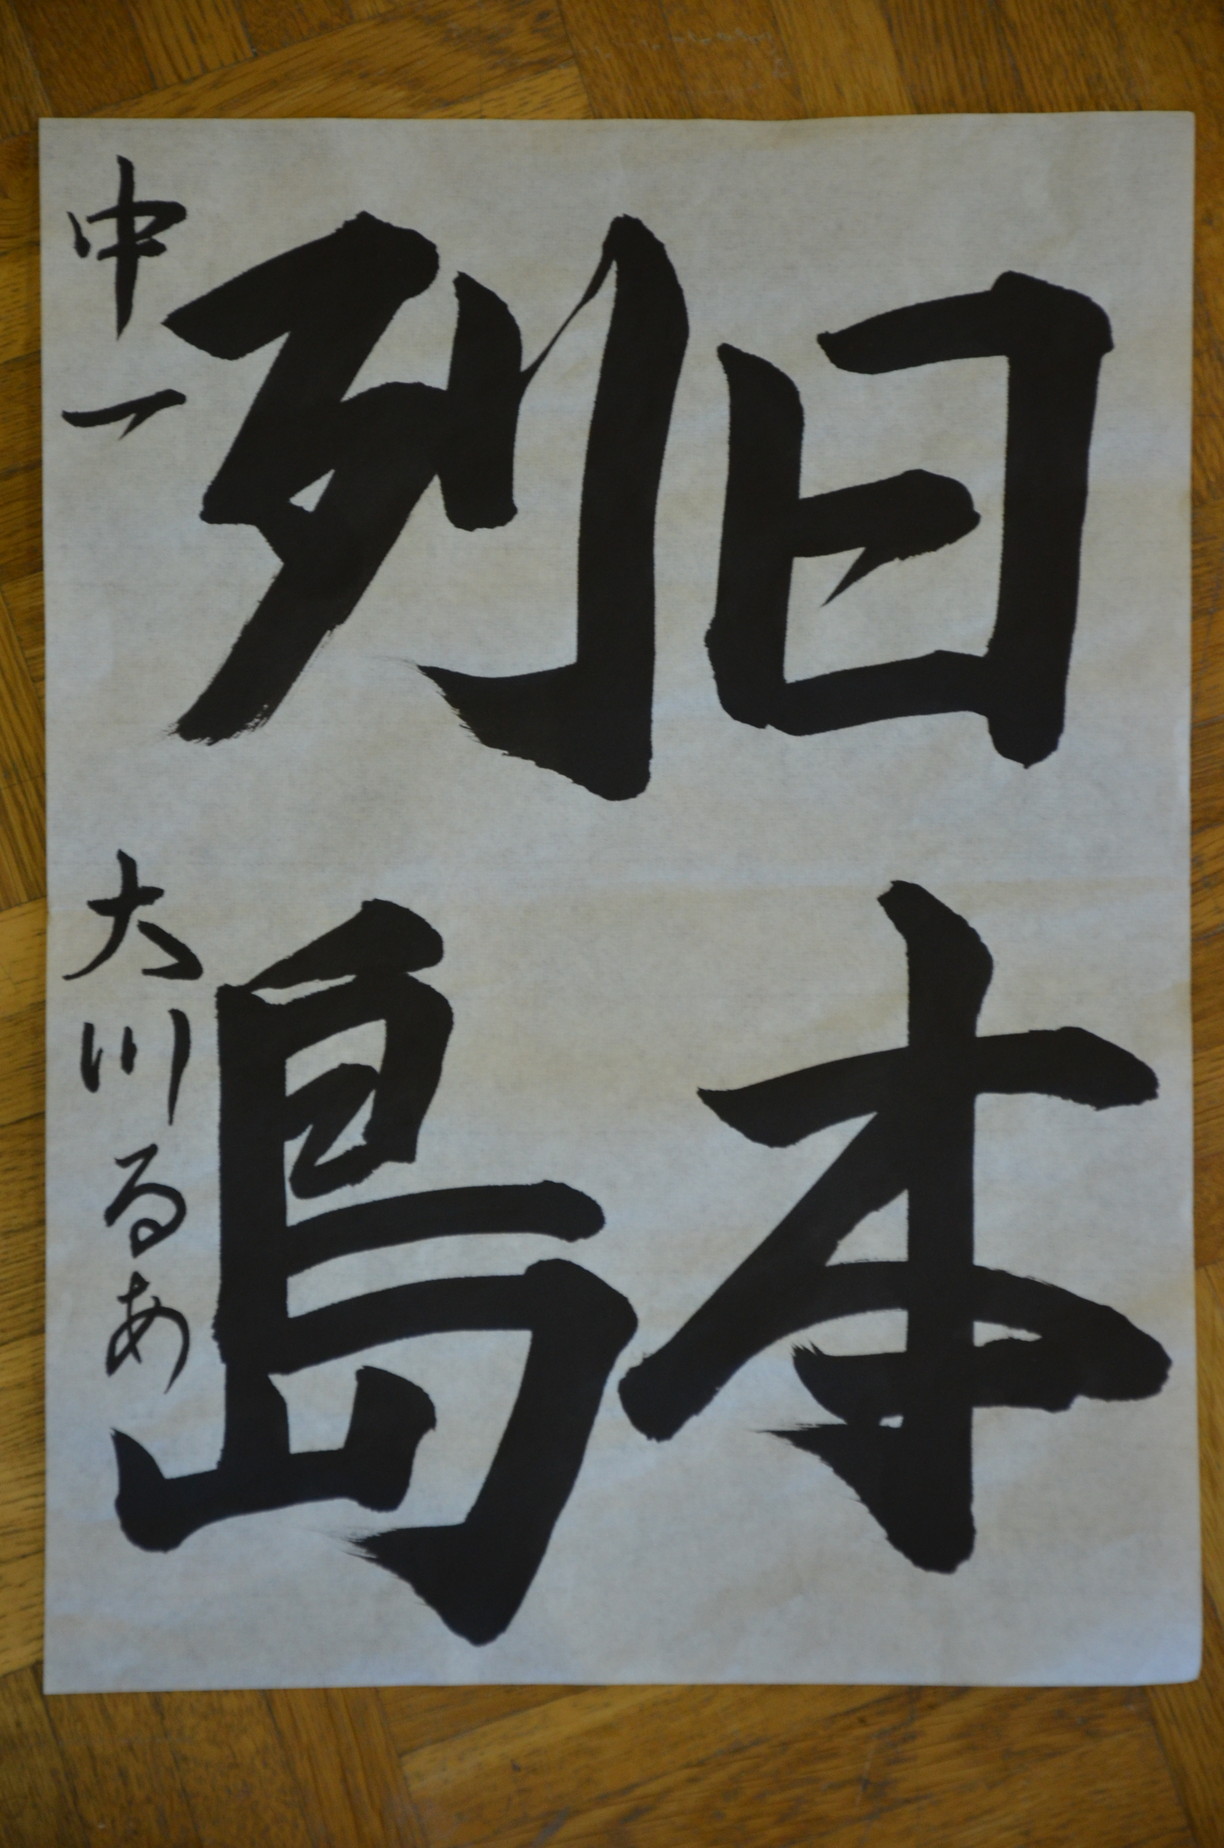 日本
列島
中一 大川るあ